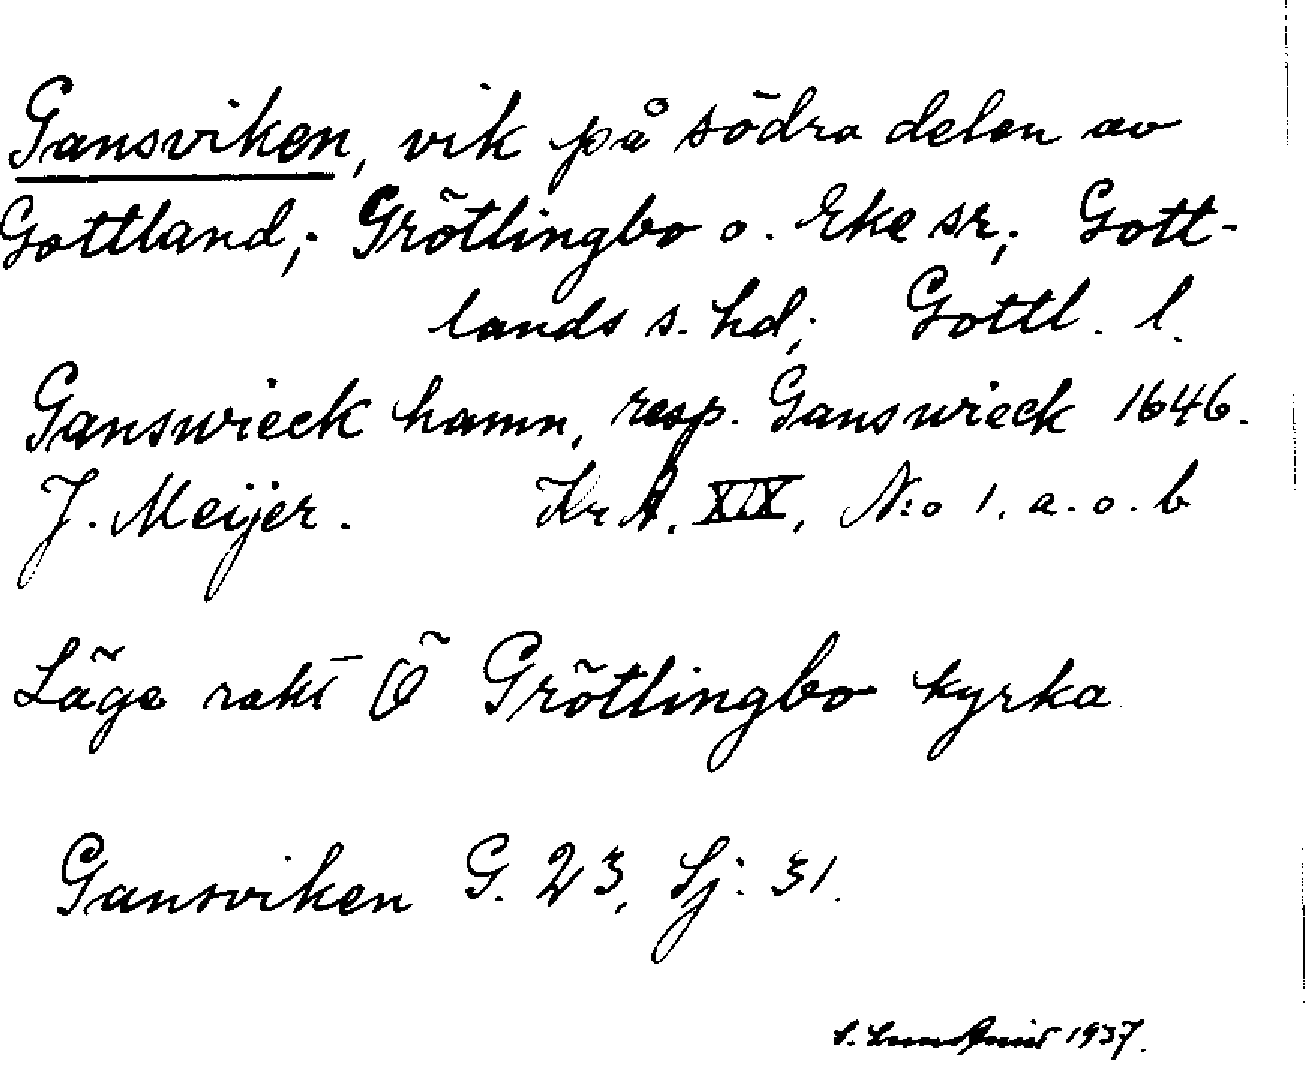 Gansviken, vik på södra delen av
Gottland; Grötlingbo o. Eke sr; Gott-
lands s. hd; Gottl. l.
Ganswieck hamn, resp. Ganswieck 1646.
J. Meijer. Kr A. XIX, N:o 1. a. o. b
Läge rakt Ö Grötlingbo kyrka
Gansviken G. 23, Sj: 31.
1937.